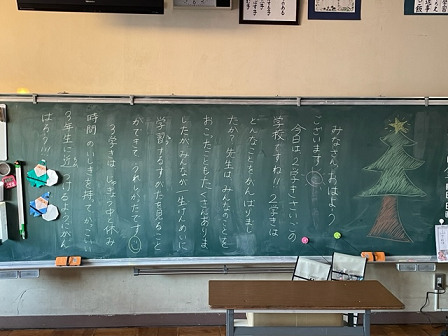 みなさん、おはよう
ございます。
今日は2学きさいごの
学校ですね!!2学きは
どんなことをがんばりまし
たか?先生はみんなのことを
おこったこともたくさんありま
したがみんなが一生けんめいに
学習するすがたを見ること
ができてうれしかったです。
3学きは、じゅぎょう中と休み
時間のいしきを持って、かっこいい
3年生に近づけるようにがん
ばろう!!